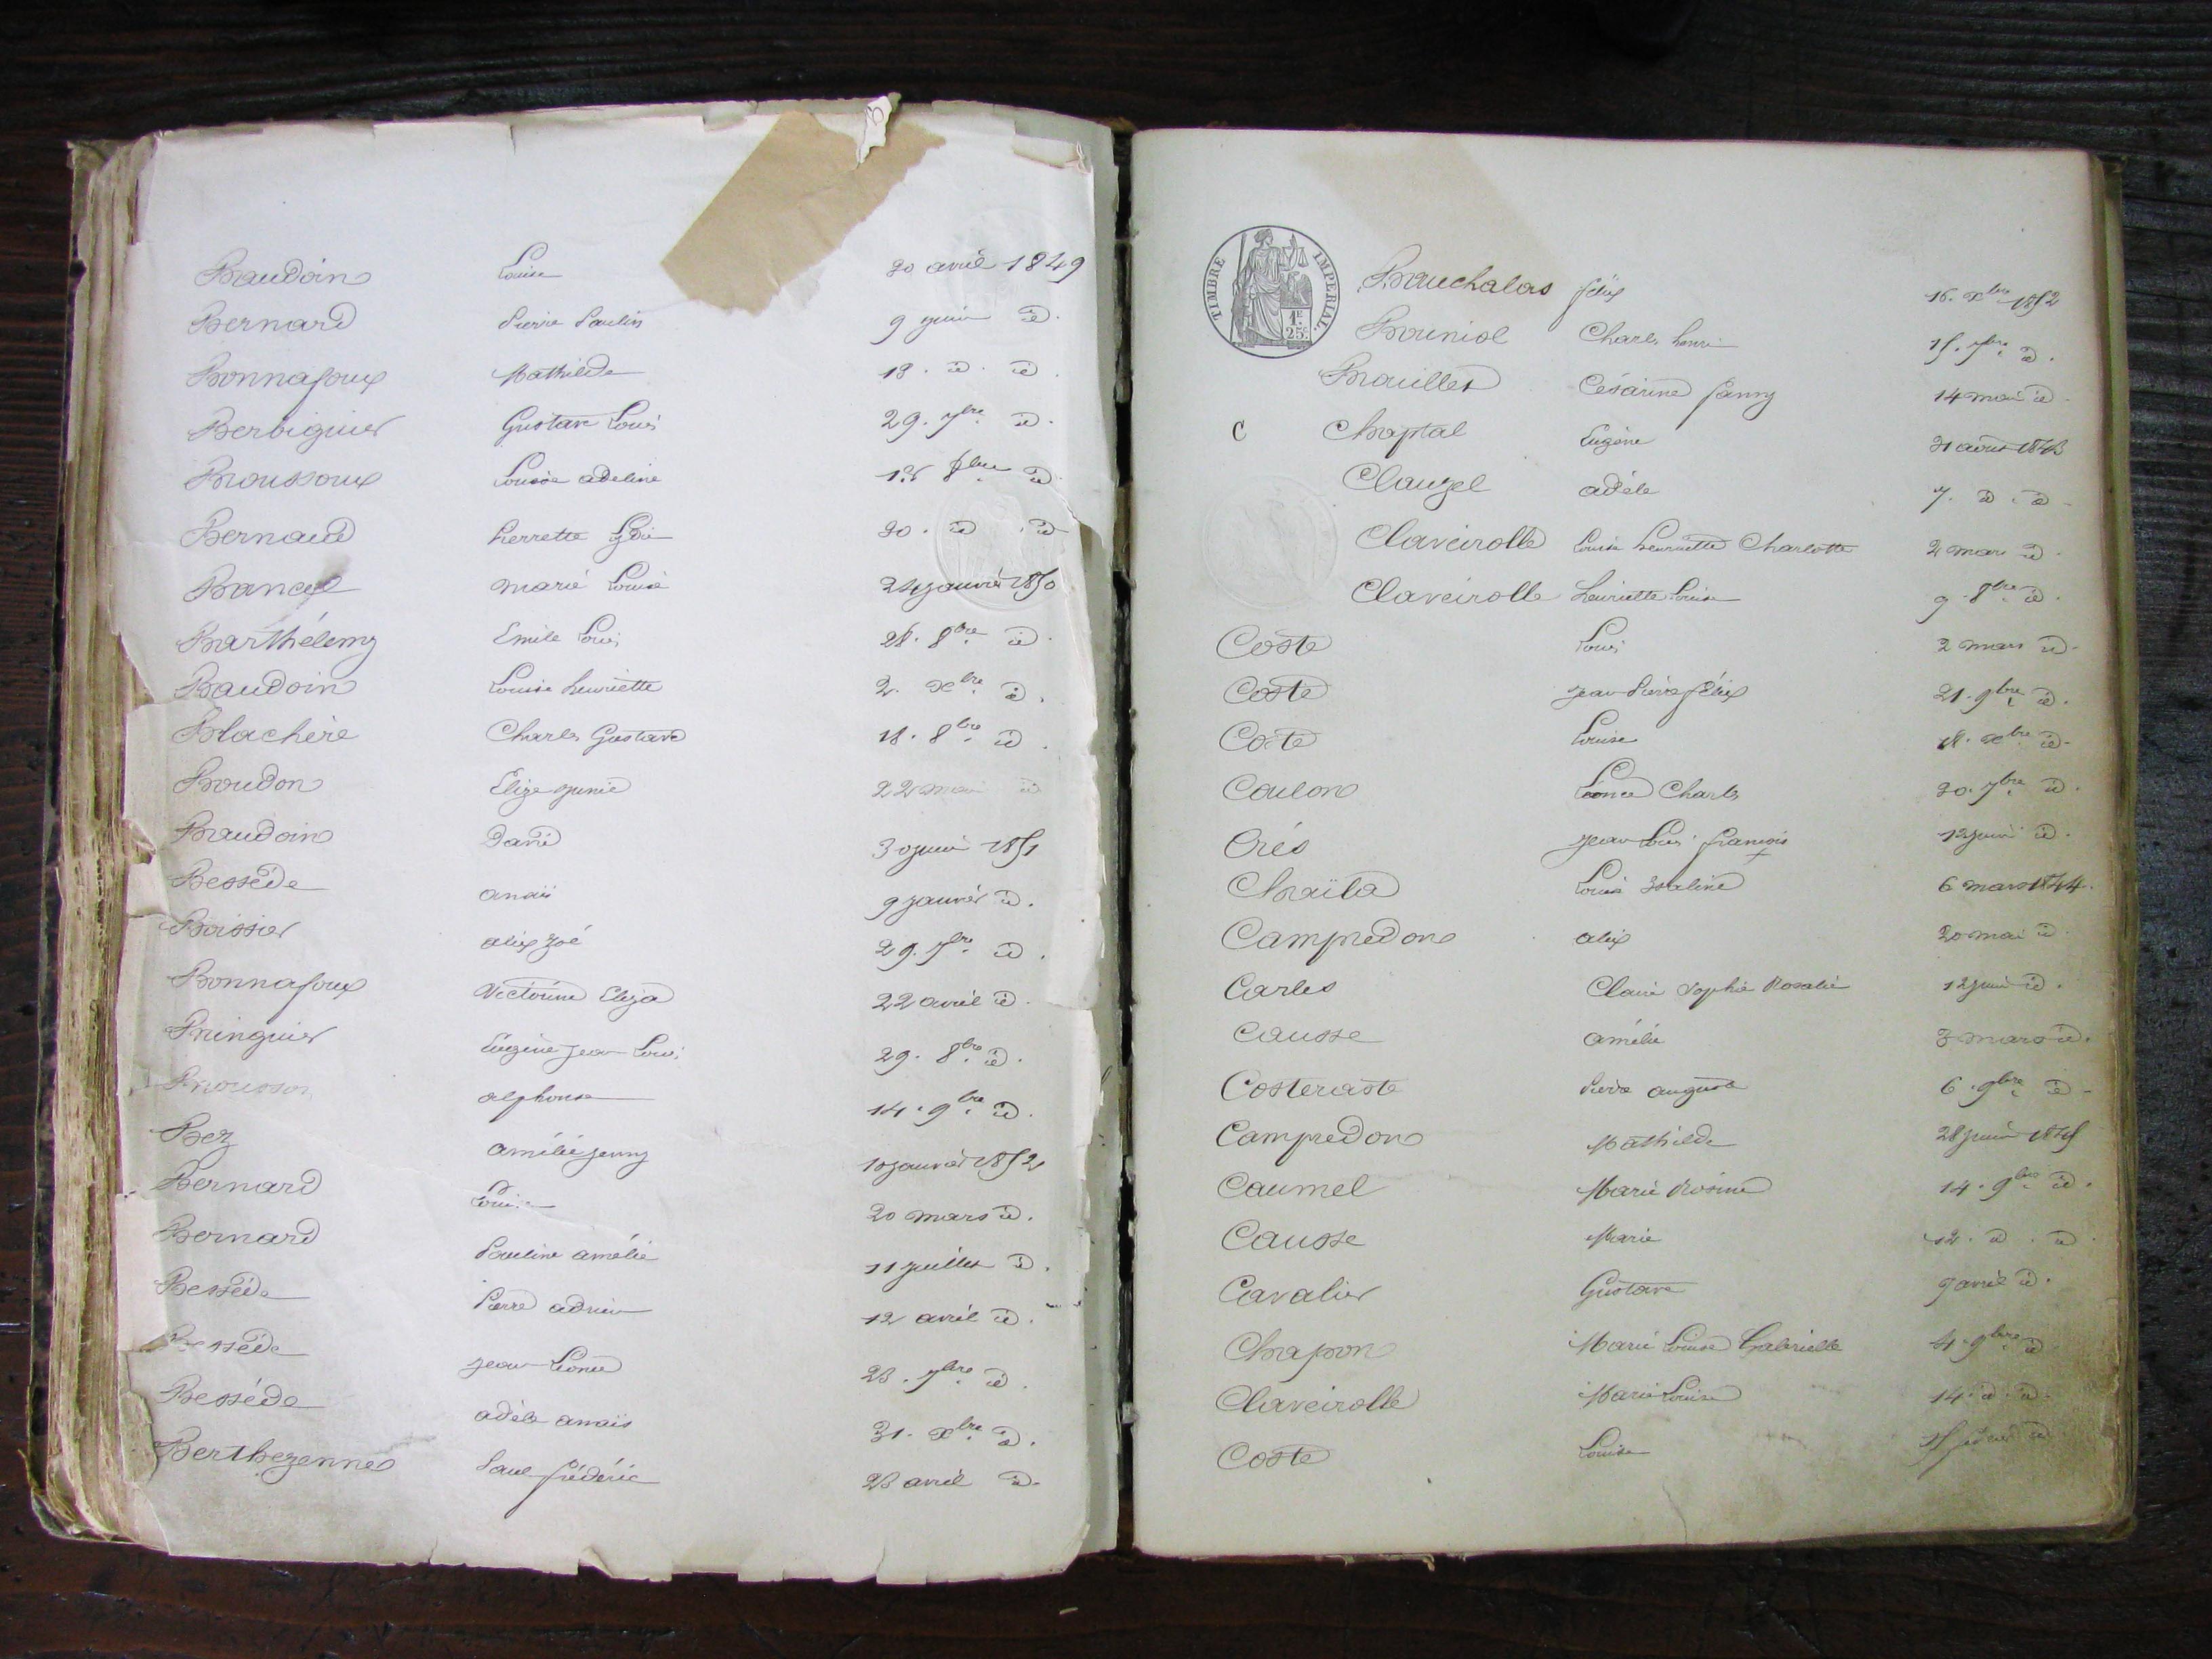 B
Baudoin Louise 30 avril 1849
Bernard Pierre Paulin 9 juin id.
Bonnafoux Mathilde 18. id. id.
Berbiguier Gustave Louis 29. 7bre id.
Broussoux Louise adeline 8bre id.
Bernaud Pierrette 30. id. id.
Bancel marie Louise 24 janvier 1850
Barthélemy Emile Louis 28. 8bre id.
Baudoin Louise henriette 2. xbre id.
Blachère Charles Gustave 18. 8bre id.
Boudon Elize junie 22 mai id
Baudoin David 30 juin 1851
Bessède anaïs 9 janvier id.
Boissier alix Zoé 29. 7bre id.
Bonnafoux Victorine Eliza 22 avril id.
Bringuier Eugène Jean Louis 29. 8bre id.
Brousson alphonse 14. 9bre id.
Bez amélie jenny 10 janvier 1852
Bernard Louise 20 mars id.
Bernard Pauline amélie 11 juillet id.
Bessède Pierre adrien 12 avril id.
Bessède jean Léonce 23. 7bre id.
Bessède adèle anaïs 31. xbre id.
Berthezenne Paul frédéric 23 avril id.
TIMBRE IMPERIAL.
1F. 25c.
Bruchalas félix 16. xbre 1852
Bouniol Charles henri 15. 7bre id.
Brouillet Césarine fanny 14 mai id.
C Chaptal Eugène 31 août 1843
Clauzel adèle 7. id. id.
Claveirolle Louise henriette Charlotte 2 mars id.
Claveirolle henriette Louise 9. 8bre id.
Coste Louis 2 mars id.
Coste jean Pierre félix 21. 9bre id.
Coste Louise 18. xbre id.
Coulon Léonce Charles 30. 7bre id.
Crés jean Louis françois 12 juin id.
Chaïla Louise Zraline 6 mars 1844.
Campredon alix 20 mai id.
Carles Claire Sophie Rosalie 12 juin id.
Causse amélie 3 mars id.
Costeraste Pierre auguste 6. 9bre id.
Campredon Mathilde 28 juin 1845
Caumel Marie Rosine 14. 9bre id.
Causse Marie 12. id. id.
Cavalier Gustave 9 avril id.
Chapon Marie Louise Gabrielle 4. 9bre id
Claveirolle Marie Louise 14. id. id.
Coste Louise 15 février id